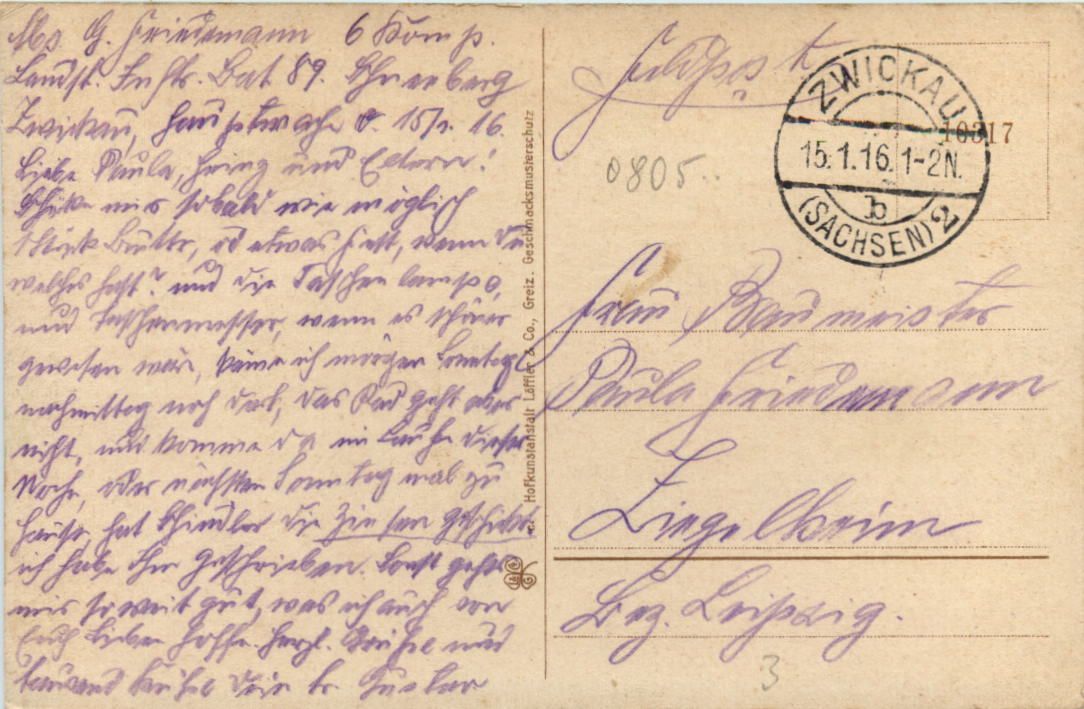 Abs. G. Friedemann 6 Komp.
Landst. Inftr. Bat 89. Schneeberg
Zwickau, Hauptwache d. 15/1. 16.
Liebe Paula, Heinz und Eltern!
Schicke mir sobald wie möglich
1 Stück Butter, od etwas Fett, wenn Du
welches hast? und die Taschenlampe,
und Taschenmesser, wenn es schöner
gewesen wäre, käme ich morgen Sonntag
nachmittag noch dort, das Rad geht aber
nicht, und komme da im Laufe dieser
Woche, oder nächsten Sonntag mal zu
Hause, hat Schindler die Zinsen geschickt.
ich habe Ihm geschrieben. Sonst geht es
mir soweit gut, was ich auch von
Euch Lieben hoffe. Herzl. Grüße und
tausend Küsse Dein lb. Gustav
Hofkunstanstalt Löffler & Co., Greiz. Geschmacksmusterschutz
Feldpost
ZWICKAU
15.1.16. 1-2N.
b
(SACHSEN) 2
10317
0805
Frau Baumeister
Paula Friedemann
Ziegelheim
Bez. Leipzig.
3